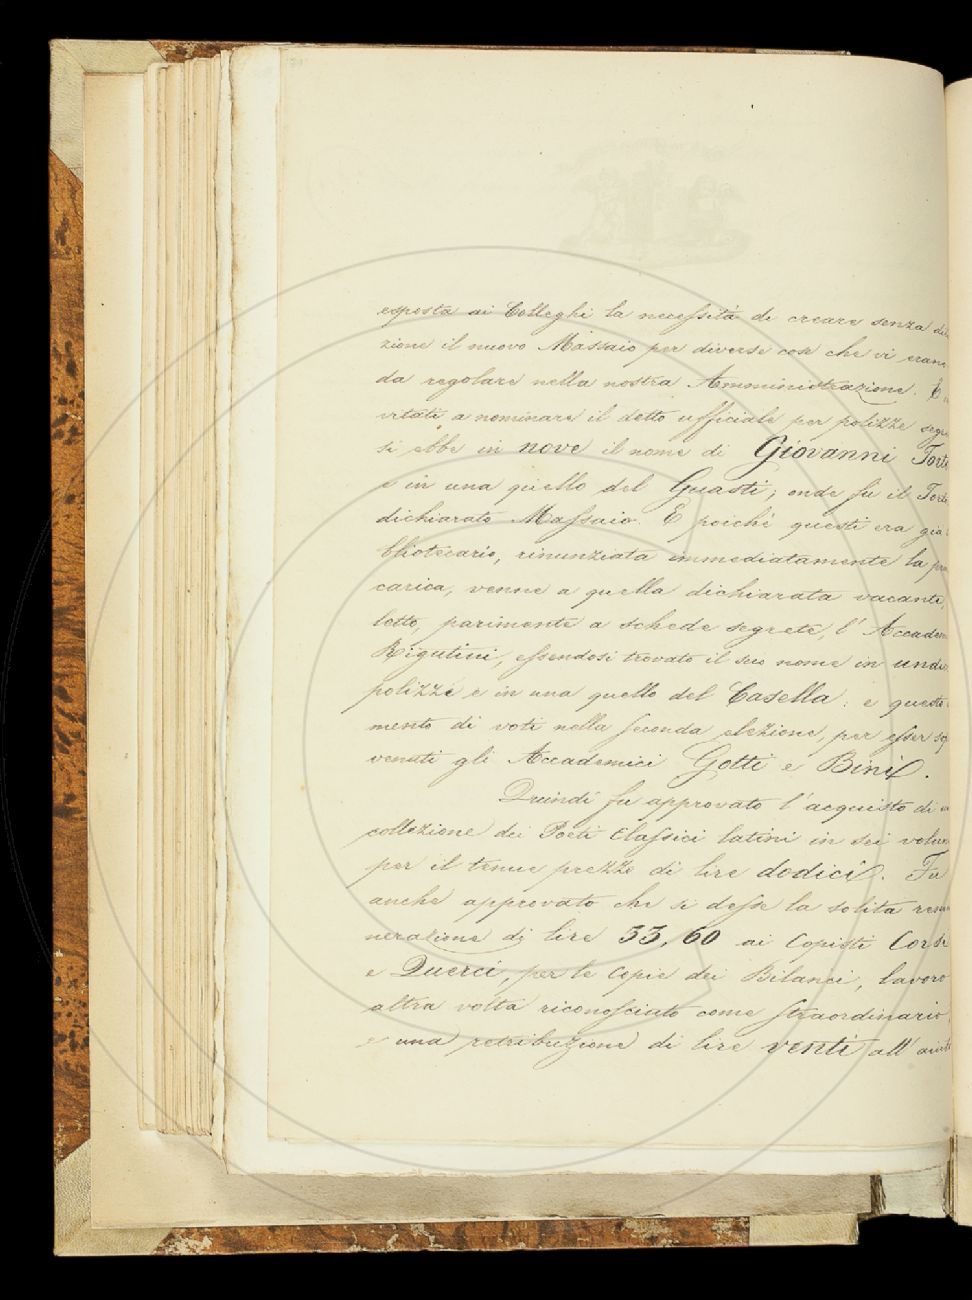 esposta ai Colleghi la necessità di creare senza dila
zione il nuovo Massaio per diverse cose che vi erano
da regolare nella nostra Amministrazione. E
vitati a nominare il detto ufficiale per polizze segre
si ebbe in nove il nome di Giovanni Torto
e in una quello del Guasti; onde fu il Torto
dichiarato Massaio. E poichè questi era già
bliotecario, rinunziata immediatamente la pri
carica, venne a quella dichiarata vacante,
letto, parimente a schede segrete, l'Accadem
Rigutini, essendosi trovato il suo nome in undi
polizze e in una quello del Casella: e questo
mento di voti nella seconda elezione, per esser so
venuti gli Accademici Gotti e Bini.
Quindi fu approvato l'acquisto di
collezione dei Poeti Classici latini in sei volum
per il tenue prezzo di lire dodici. Fu
anche approvato che si desse la solita remu
nerazione di lire 33,60 ai Copisti Corsi
e Querci, per le Copie dei Bilanci, lavoro
altra volta riconosciuto come straordinario,
e una retribuzione di lire venti all'